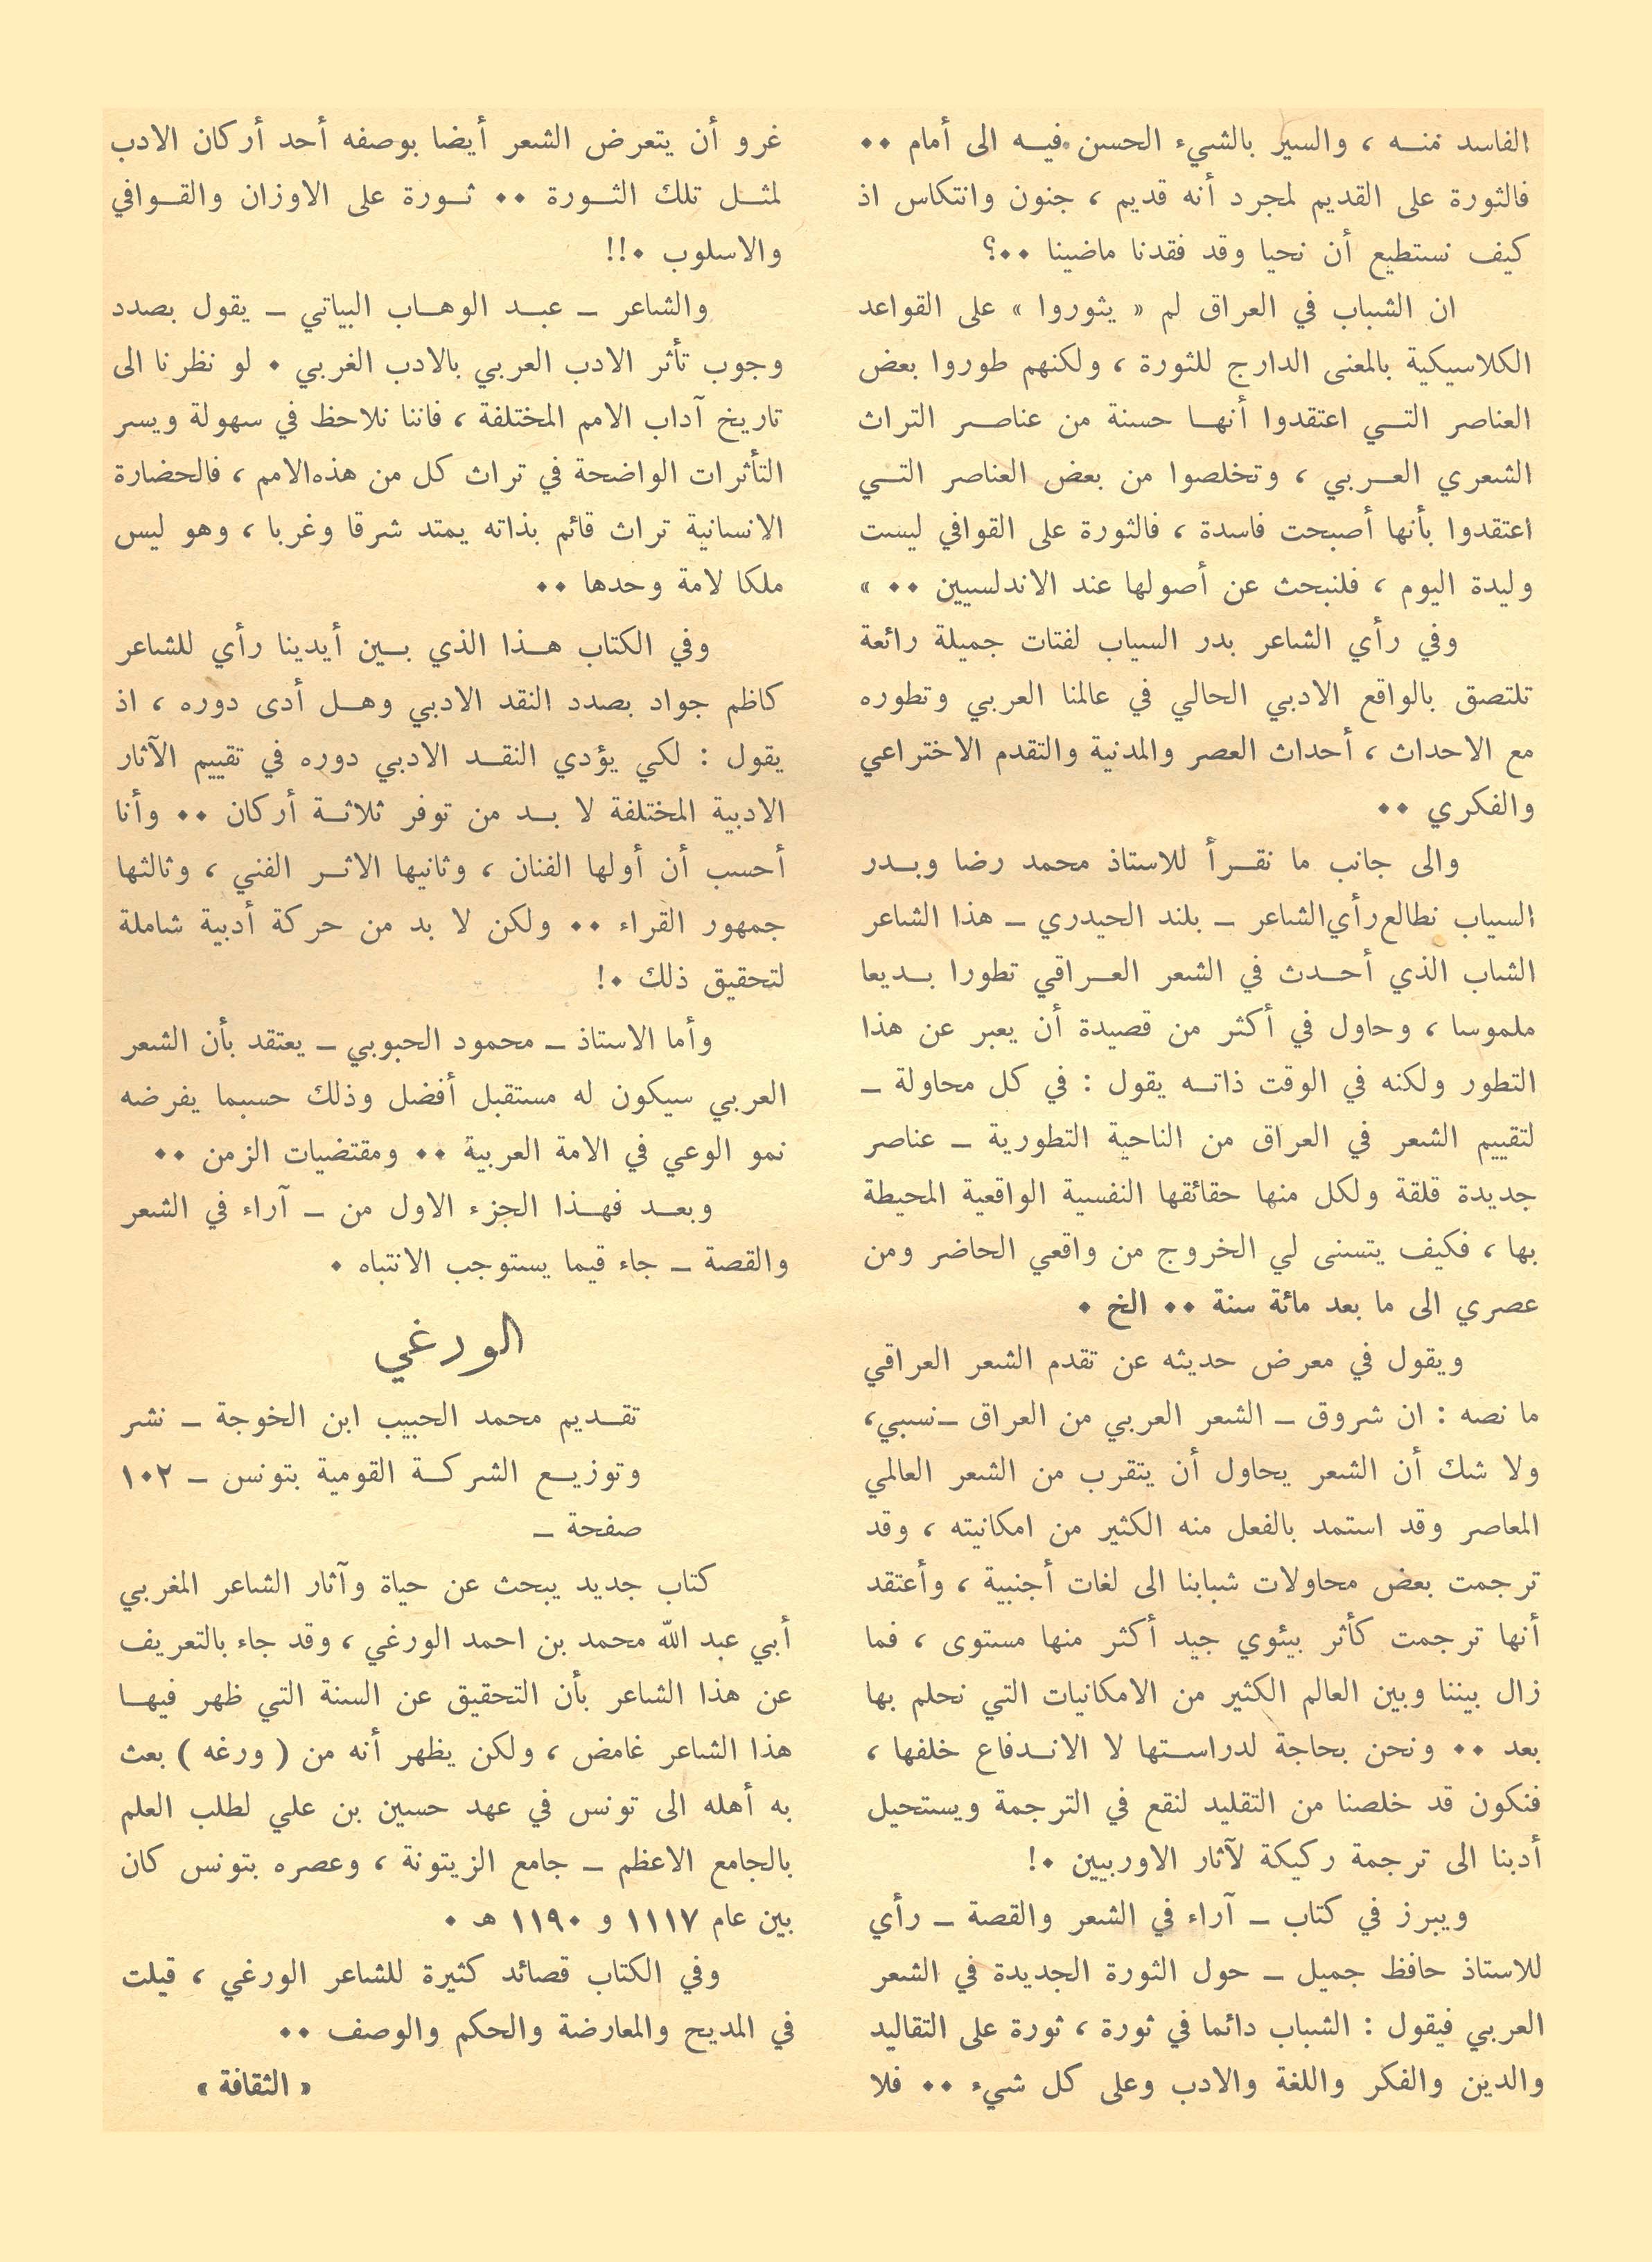 الفاسد منه ، والسير بالشيء الحسن فيه الى أمام ٠٠
فالثورة على القديم لمجرد أنه قديم ، جنون وانتكاس اذ
كيف نستطيع أن نحيا وقد فقدنا ماضينا ٠٠؟
ان الشباب في العراق لم « يثوروا » على القواعد
الكلاسيكية بالمعنى الدارج للثورة ، ولكنهم طوروا بعض
العناصر التي اعتقدوا أنها حسنة من عناصر التراث
الشعري العربي ، وتخلصوا من بعض العناصر التي
اعتقدوا بأنها أصبحت فاسدة ، فالثورة على القوافي ليست
وليدة اليوم ، فلنبحث عن أصولها عند الاندلسيين ٠٠ »
وفي رأي الشاعر بدر السياب لفتات جميلة رائعة
تلتصق بالواقع الادبي الحالي في عالمنا العربي وتطوره
مع الاحداث ، أحداث العصر والمدنية والتقدم الاختراعي
والفكري ٠٠
والى جانب ما نقرأ للاستاذ محمد رضا وبدر
السياب نطالع رأي الشاعر ــ بلند الحيدري ــ هذا الشاعر
الشاب الذي أحدث في الشعر العراقي تطورا بديعا
ملموسا ، وحاول في أكثر من قصيدة أن يعبر عن هذا
التطور ولكنه في الوقت ذاته يقول : في كل محاولة ــ
لتقييم الشعر في العراق من الناحية التطورية ــ عناصر
جديدة قلقة ولكل منها حقائقها النفسية الواقعية المحيطة
بها ، فكيف يتسنى لي الخروج من واقعي الحاضر ومن
عصري الى ما بعد مائة سنة ٠٠ الخ ٠
ويقول في معرض حديثه عن تقدم الشعر العراقي
ما نصه : ان شروق ــ الشعر العربي من العراق ــ نسبي،
ولا شك أن الشعر يحاول أن يتقرب من الشعر العالمي
المعاصر وقد استمد بالفعل منه الكثير من امكانيته ، وقد
ترجمت بعض محاولات شبابنا الى لغات أجنبية ، وأعتقد
أنها ترجمت كأثر بيئوي جيد أكثر منها مستوى ، فما
زال بيننا وبين العالم الكثير من الامكانيات التي نحلم بها
بعد ٠٠ ونحن بحاجة لدراستها لا الاندفاع خلفها ،
فنكون قد خلصنا من التقليد لنقع في الترجمة ويستحيل
أدبنا الى ترجمة ركيكة لآثار الاوربيين ٠!
ويبرز في كتاب ــ آراء في الشعر والقصة ــ رأي
للاستاذ حافظ جميل ــ حول الثورة الجديدة في الشعر
العربي فيقول : الشباب دائما في ثورة ، ثورة على التقاليد
والدين والفكر واللغة والادب وعلى كل شيء ٠٠ فلا
غرو أن يتعرض الشعر أيضا بوصفه أحد أركان الادب
لمثل تلك الثورة ٠٠ ثورة على الاوزان والقوافي
والاسلوب ٠!!
والشاعر ــ عبد الوهاب البياتي ــ يقول بصدد
وجوب تأثر الادب العربي بالادب الغربي ٠ لو نظرنا الى
تاريخ آداب الامم المختلفة ، فاننا نلاحظ في سهولة ويسر
التأثرات الواضحة في تراث كل من هذه الامم ، فالحضارة
الانسانية تراث قائم بذاته يمتد شرقا وغربا ، وهو ليس
ملكا لامة وحدها ٠٠
وفي الكتاب هذا الذي بين أيدينا رأي للشاعر
كاظم جواد بصدد النقد الادبي وهل أدى دوره ، اذ
يقول : لكي يؤدي النقد الادبي دوره في تقييم الآثار
الادبية المختلفة لا بد من توفر ثلاثة أركان ٠٠ وأنا
أحسب أن أولها الفنان ، وثانيها الاثر الفني ، وثالثها
جمهور القراء ٠٠ ولكن لا بد من حركة أدبية شاملة
لتحقيق ذلك ٠!
وأما الاستاذ ــ محمود الحبوبي ــ يعتقد بأن الشعر
العربي سيكون له مستقبل أفضل وذلك حسبما يفرضه
نمو الوعي في الامة العربية ٠٠ ومقتضيات الزمن ٠٠
وبعد فهذا الجزء الاول من ــ آراء في الشعر
والقصة ــ جاء قيما يستوجب الانتباه ٠
الورغي
تقديم محمد الحبيب ابن الخوجة ــ نشر
وتوزيع الشركة القومية بتونس ــ ١٠٢
صفحة ــ
كتاب جديد يبحث عن حياة وآثار الشاعر المغربي
أبي عبد الله محمد بن احمد الورغي ، وقد جاء بالتعريف
عن هذا الشاعر بأن التحقيق عن السنة التي ظهر فيها
هذا الشاعر غامض ، ولكن يظهر أنه من ( ورغه ) بعث
به أهله الى تونس في عهد حسين بن علي لطلب العلم
بالجامع الاعظم ــ جامع الزيتونة ، وعصره بتونس كان
بين عام ١١١٧ و ١١٩٠ هـ ٠
وفي الكتاب قصائد كثيرة للشاعر الورغي ، قيلت
في المديح والمعارضة والحكم والوصف ٠٠
« الثقافة »